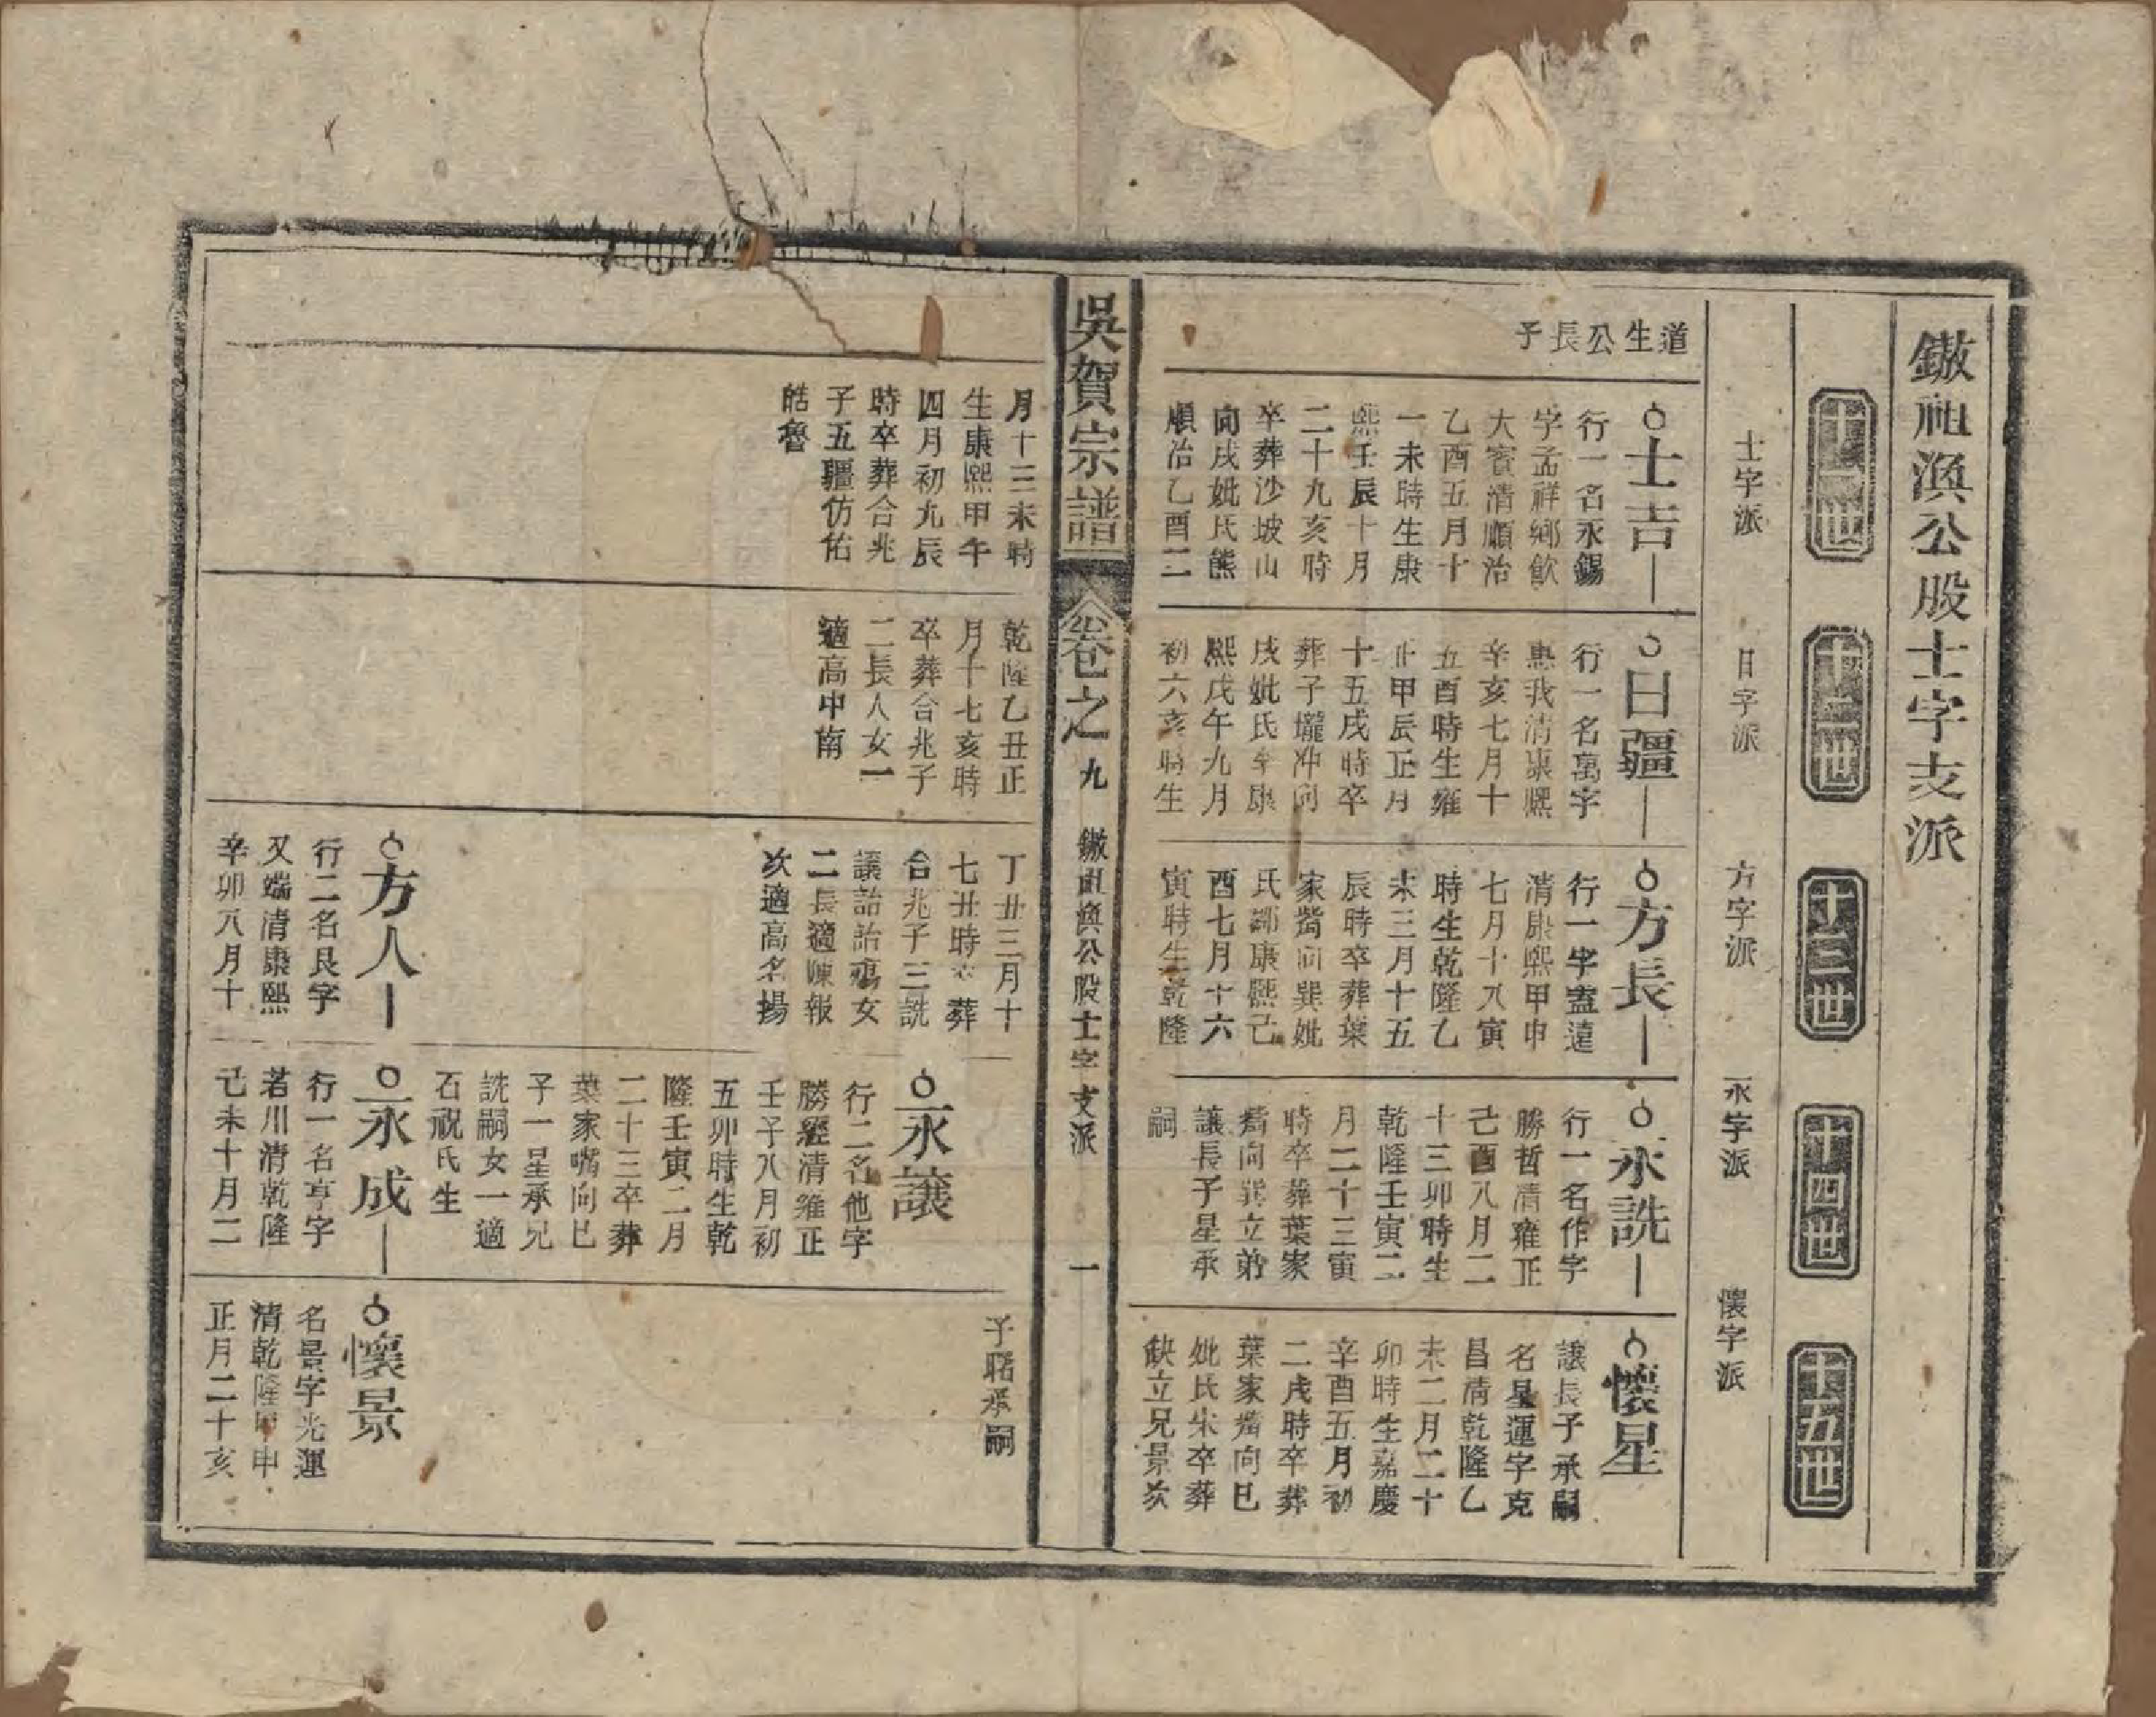 鏾祖渙公股士字支派
十一世
十二世
十三世
十四世
十五世
士字派
日字派
方字派
永字派
懷字派
道生公長子
士吉
行一名永錫
字孟祥鄉飲
大賓清順治
乙酉五月十
一未時生康
熙壬辰十月
二十九亥時
卒葬沙坡山
向戌妣氏熊
順治乙酉二
日疆
行一名萬字
惠我清康熙
辛亥七月十
五酉時生雍
正甲辰正月
十五戌時卒
葬子壠冲向
戌妣氏辛康
熙戊午九月
初六亥時生
方長
行一字孟達
清康熙甲申
七月十八寅
時生乾隆乙
未三月十五
辰時卒葬葉
家嘴向巽妣
氏鄒康熙己
酉七月十六
寅時生乾隆
永詵
行一名作字
勝哲清雍正
己酉八月二
十三卯時生
乾隆壬寅二
月二十三寅
時卒葬葉家
嘴向巽立弟
讓長子星承
嗣
懷星
讓長子承嗣
名星運字克
昌清乾隆乙
未二月二十
卯時生嘉慶
辛酉五月初
二戌時卒葬
葉家嘴向巳
妣氏朱卒葬
缺立兄景次
吳賀宗譜
卷之九
鏾祖渙公股士字支派
一
月十三未時
生康熙甲午
四月初九辰
時卒葬合兆
子五疆仿佑
皓魯
乾隆乙丑正
月十七亥時
卒葬合兆子
二長人女一
適高中南
丁丑三月十
七丑時卒葬
合兆子三詵
讓詒詒殤女
二長適陳報
次適高名揚
永讓
行二名他字
勝經清雍正
壬子八月初
五卯時生乾
隆壬寅二月
二十三卒葬
葉家嘴向巳
子一星承兄
詵嗣女一適
石祝氏生
子昭承嗣
方人
行二名良字
又端清康熙
辛卯八月十
永成
行一名亨字
若川清乾隆
己未十月二
懷景
名景字光運
清乾隆甲申
正月二十亥